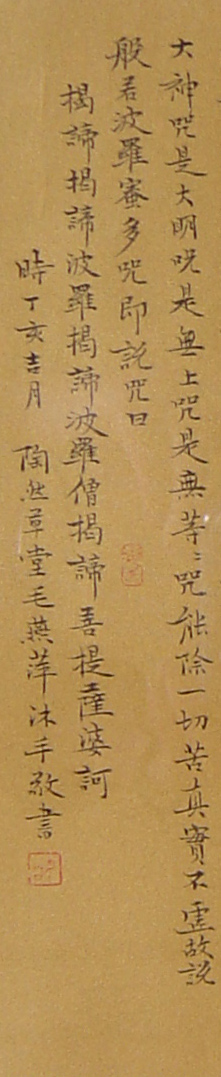 大神咒是大明咒是無上咒是無等々咒能除一切苦真實不虛故説
般若波羅蜜多咒即説咒曰
揭諦揭諦波羅揭諦波羅僧揭諦菩提薩婆訶
時丁亥吉月 陶然草堂毛燕萍沐手敬書